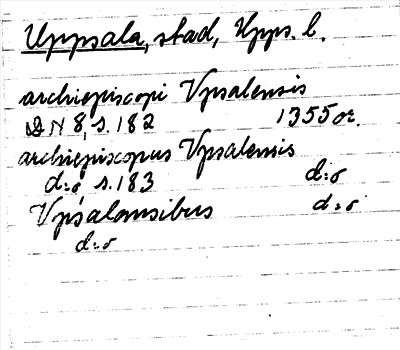 Uppsala, stad, Upps. l.
archiepiscopi Vpsalensis
DN 8, s. 182 1355 or.
archiepiscopus Vpsalensis
d:o s. 183 d:o
Vpsalensibus d:o
d:o